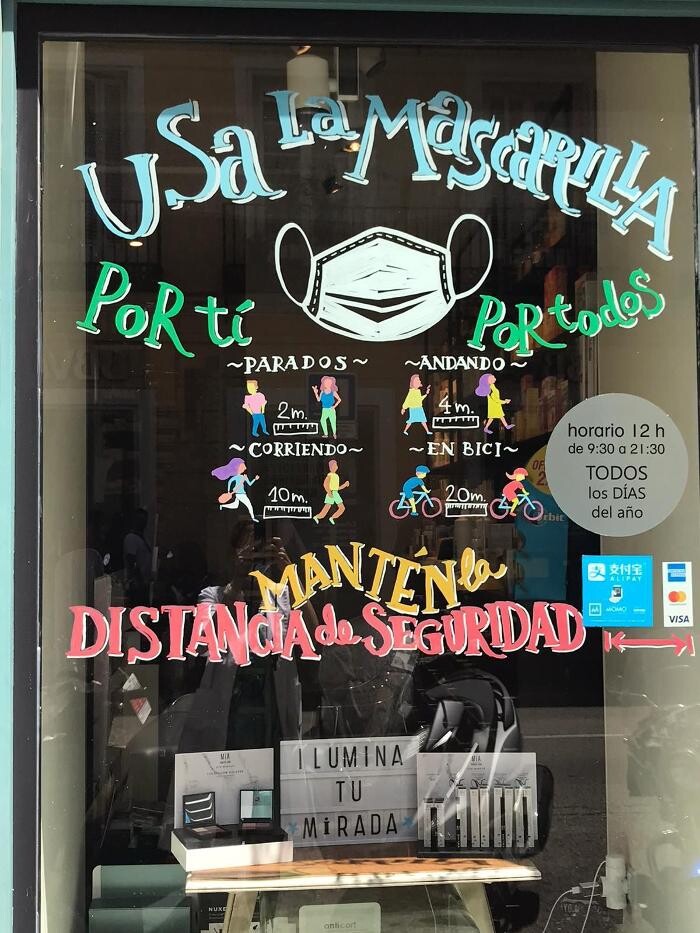 USa La MascaRILLA
PoR tí
PoR todos
~PARADOS~
~ANDANDO~
2m.
4m.
~CORRIENDO~
~EN BICI~
10m.
20m.
horario 12 h
de 9:30 a 21:30
TODOS
los DÍAS
del año
MANTÉN la
DISTANCIA de SEGURIDAD
支付宝
ALIPAY
MOMO
VISA
MIA
MIA
ILUMINA
TU
MiRADA
NUXE
anticort